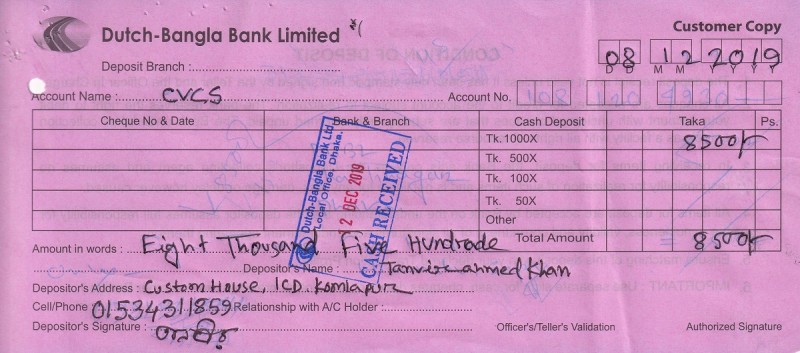 Dutch-Bangla Bank Limited
Customer Copy
08 12 2019
D D M M Y Y Y Y
Deposit Branch :
Account Name : CVCS Account No.
Cheque No & Date Bank & Branch Cash Deposit Taka Ps.
Tk. 1000X 8500/-
Tk. 500X
Tk. 100X
Tk. 50X
Other
Dutch-Bangla Bank Ltd
Local Office, Dhaka.
2 DEC 2019
CASH RECEIVED
Total Amount 8500/-
Amount in words : Eight Thousand Five Hundrade
Depositor's Name : Tanvir ahmed Khan
Depositor's Address : Custom House, ICD, Komlapur
Cell/Phone : 01534311859 Relationship with A/C Holder :
Depositor's Signature : তানভীর
Officer's/Teller's Validation Authorized Signature